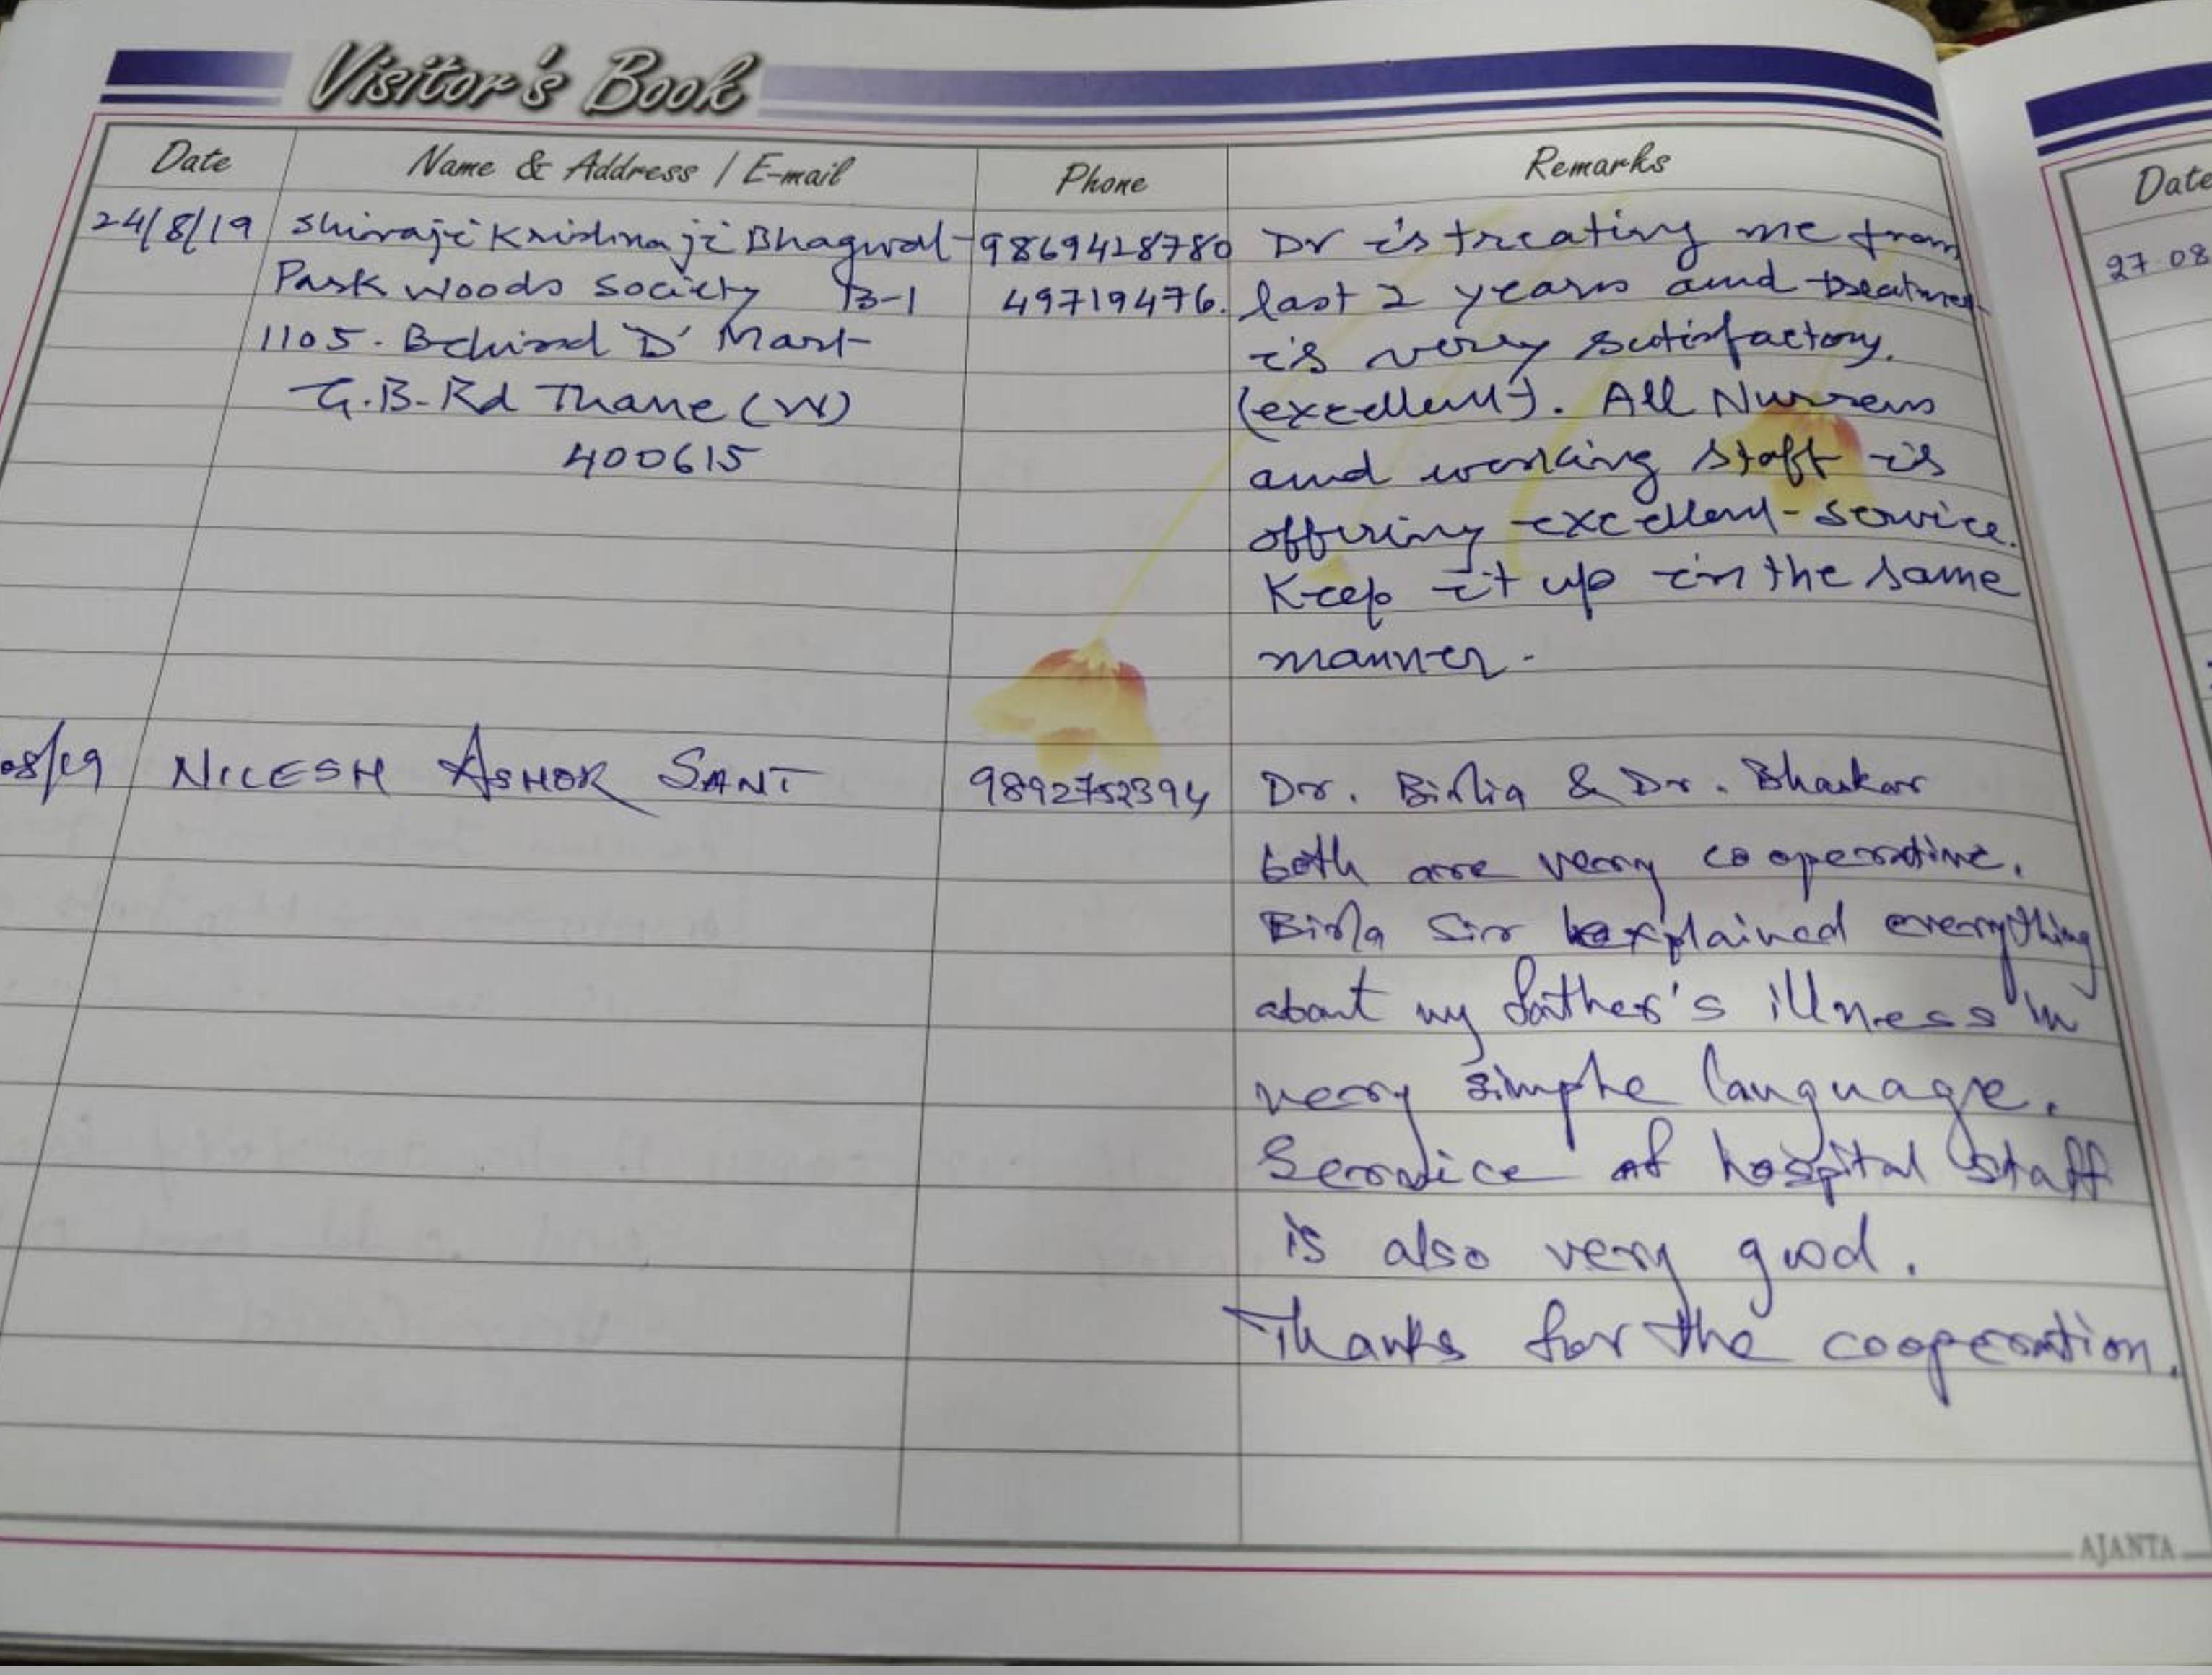 Visitor's Book
Date Name & Address / E-mail Phone Remarks
24/8/19 Shivaji Krishnaji Bhagwat 9869428780 Dr is treating me from
Park woods Society B-1 49719476. last 2 years and treatment
1105. Behind D' Mart is very satisfactory.
G.B. Rd Thane (W) (excellent). All Nurses
400615 and working staff is
offering excellent service.
Keep it up in the same
manner.
08/19 NILESH ASHOK SANT 9892752394 Dr. Birla & Dr. Bhaskar
both are very cooperative.
Birla Sir explained everything
about my father's illness in
very simple language.
Service of hospital staff
is also very good.
Thanks for the cooperation.
AJANTA
Date
27 08